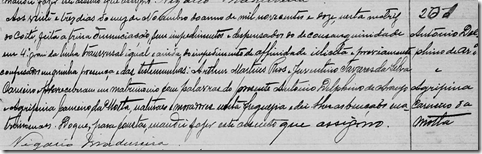 Aos vinte e tres dias do mez de Novembro do anno de mil novecentos e doze nesta matriz
do Exito, feitas as trez denunciações, sem impedimentos e dispensados do de consanguinidade
em 4º grau da linha transversal igual e do impedimento de affinidade illicita e previamente
confessados em minha presença e das testemunhas: Arthur Martins Rios e Juventino Tavares da Silva
Carneiro receberam em matrimonio com palavras de presente Antonio Delphino de Araujo
e Agripina Carneiro da Motta, naturaes e moradores nesta freguezia e dei-lhes as bensãos na
forma. Do que, para constar mandei fazer este assento que assigno.
Vigario Madureira
Antonio Del-
phino de Arº
e
Agripina
Carneiro da
Motta